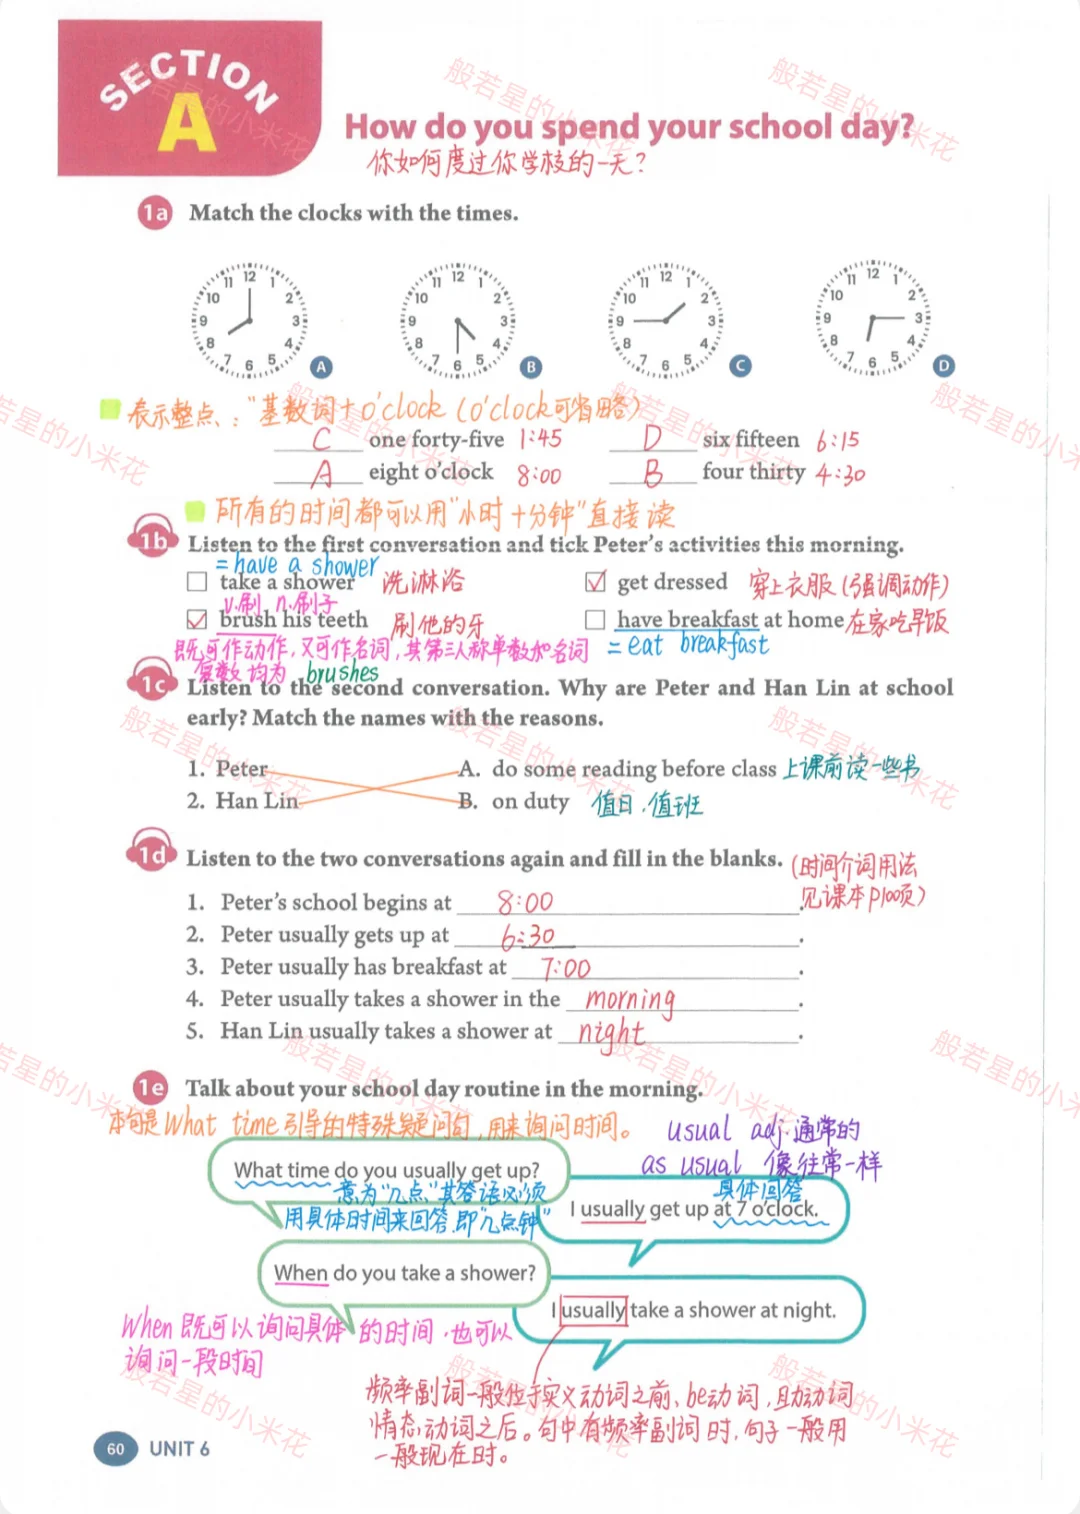 SECTION
A
How do you spend your school day?
你如何度过你学校的一天?
1a Match the clocks with the times.
12 1 2 3 4 5 6 7 8 9 10 11
A
12 1 2 3 4 5 6 7 8 9 10 11
B
12 1 2 3 4 5 6 7 8 9 10 11
C
12 1 2 3 4 5 6 7 8 9 10 11
D
表示整点:"基数词+o'clock(o'clock可省略)
C one forty-five 1:45 D six fifteen 6:15
A eight o'clock 8:00 B four thirty 4:30
所有的时间都可以用"小时+分钟"直接读
1b Listen to the first conversation and tick Peter's activities this morning.
=have a shower
take a shower 洗淋浴 ✓ get dressed 穿上衣服(强调动作)
v.刷 n.刷子
✓ brush his teeth 刷他的牙 have breakfast at home 在家吃早饭
既可作动作,又可作名词,其第三人称单数和名词 =eat breakfast
复数均为 brushes
1c Listen to the second conversation. Why are Peter and Han Lin at school
early? Match the names with the reasons.
1. Peter A. do some reading before class 上课前读一些书
2. Han Lin B. on duty 值日,值班
1d Listen to the two conversations again and fill in the blanks. (时间介词用法
见课本P100页)
1. Peter's school begins at 8:00.
2. Peter usually gets up at 6:30.
3. Peter usually has breakfast at 7:00.
4. Peter usually takes a shower in the morning.
5. Han Lin usually takes a shower at night.
1e Talk about your school day routine in the morning.
本句是What time引导的特殊疑问句,用来询问时间。
usual adj.通常的
as usual 像往常一样
What time do you usually get up?
意为"几点"其答语必须
用具体时间来回答.即"几点钟"
具体回答
I usually get up at 7 o'clock.
When do you take a shower?
I usually take a shower at night.
When既可以询问具体的时间,也可以
询问一段时间
频率副词一般位于实义动词之前、be动词,助动词
情态动词之后。句中有频率副词时,句子一般用
一般现在时。
60 UNIT 6
般若星的小米花